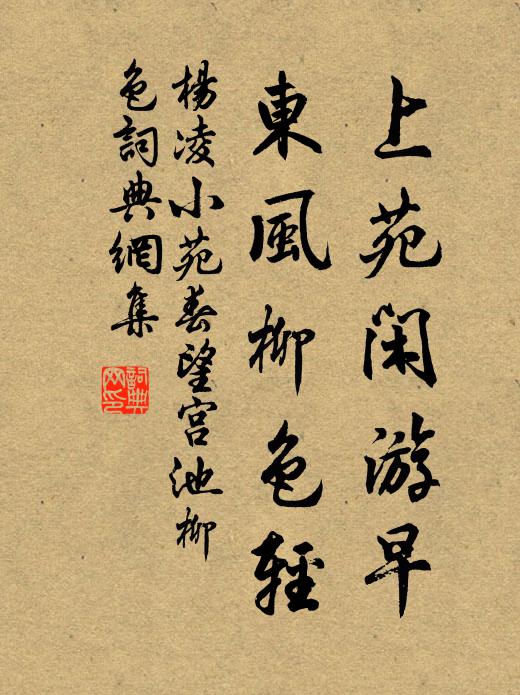 上苑閑游早
東風柳色輕
楊凌小苑春望宮池柳
色詞典網集
詞典
网印